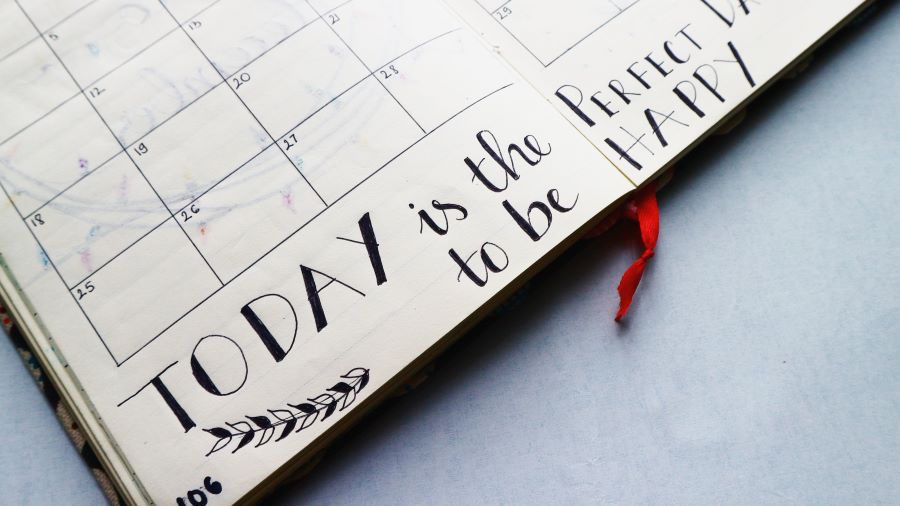 5
12 13
18 19 20 21
25 26 27 28
TODAY is the
to be
106
29
PERFECT DA
HAPPY